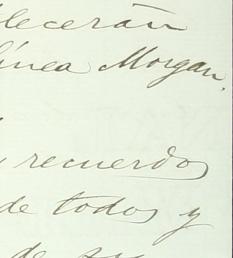 lecerán
línea Morgan.
recuerdos
de todos y
de su